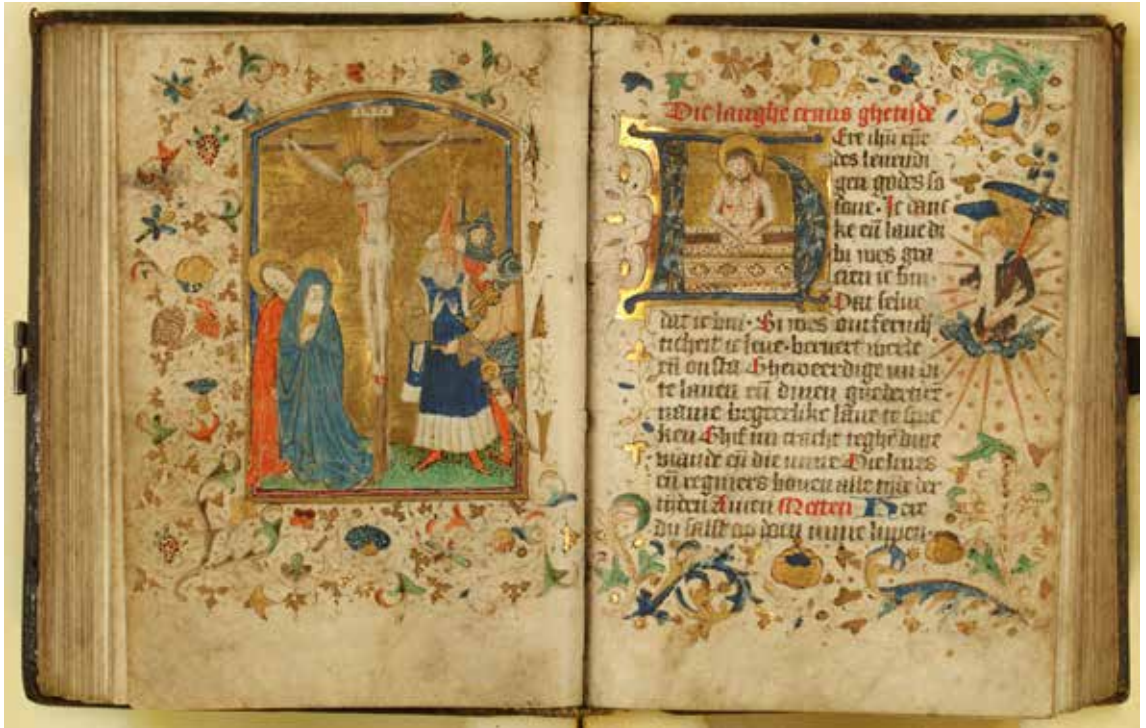 Die langhe cruus ghetijde
Ere ihu xpe
des levendi
gen godes so
sone. Ic danc
ke en lave di
bi wes gra
cien ic bin.
Dat selve
dat ic bin. Bi wes ontfermh
ticheit ic leve. beruert werde
en onsta Ghewerdige mi di
te laven en dinen
name begeerlike lave te spre
ken Ghif mi cracht teghe dine
viande en die mine Die leves
en regniers boven alle tide der
tijden Amen Metten Here
du salst op doen mine lippen.